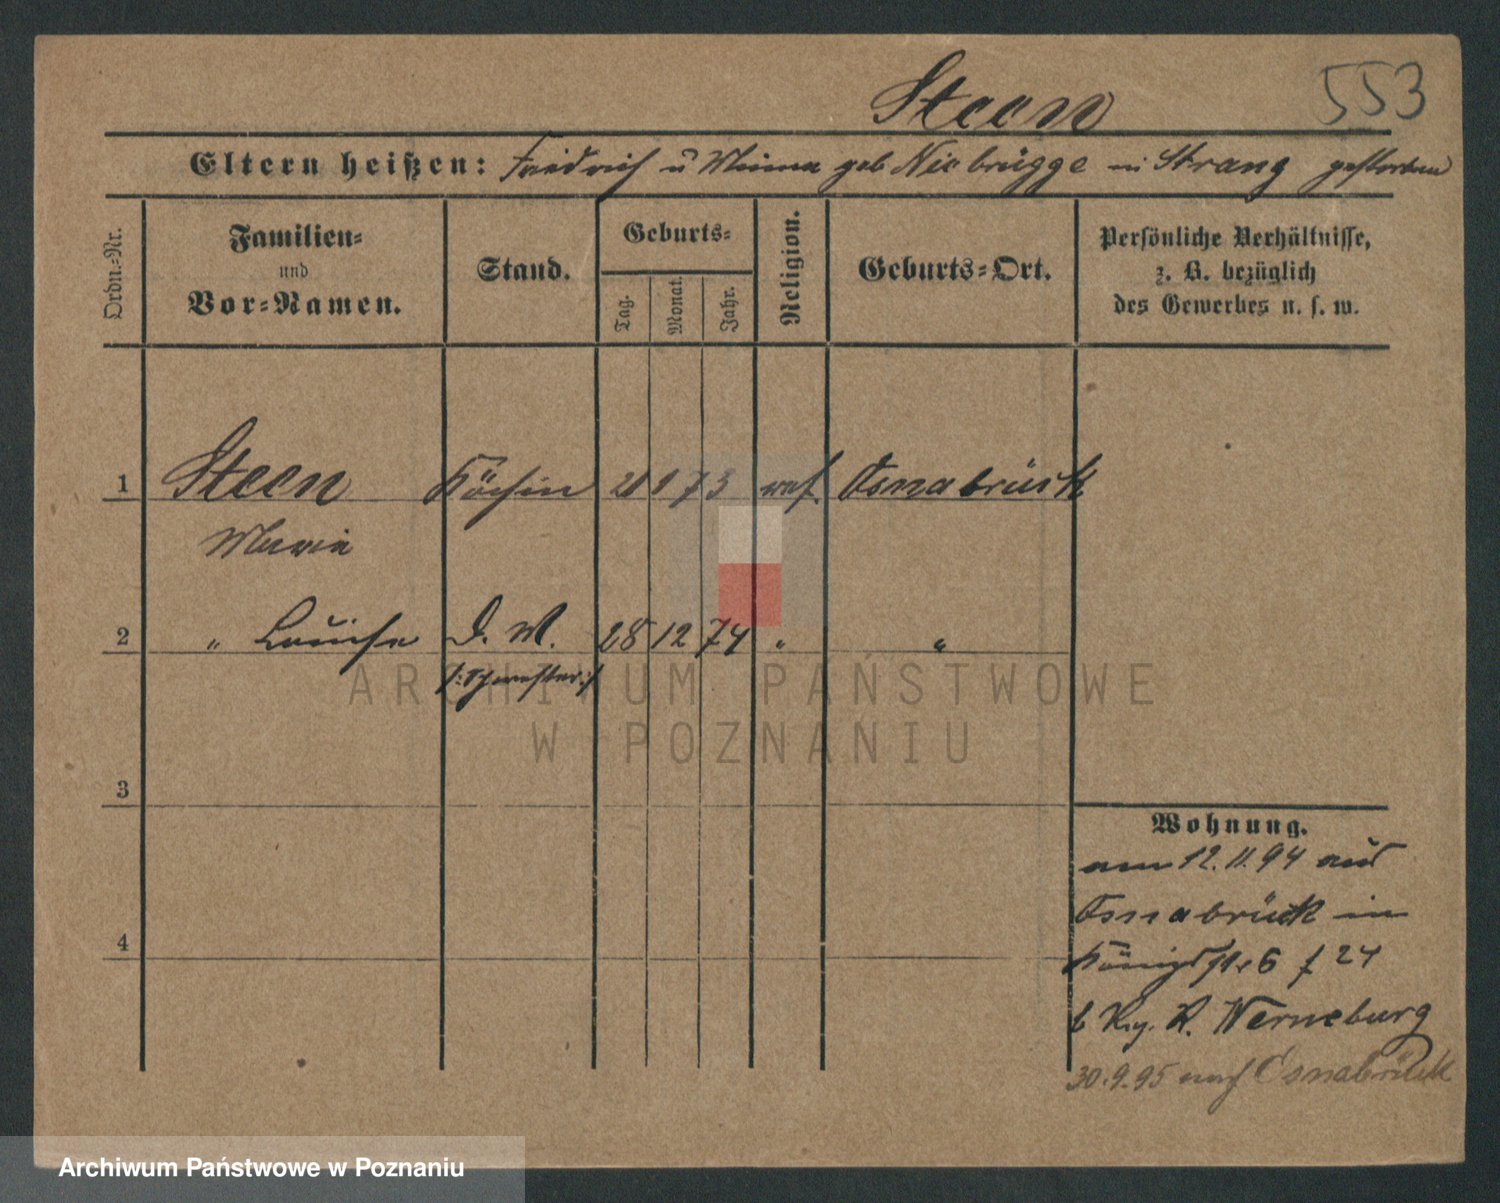 Steen 553
Eltern heißen: Friedrich u Minna geb Niebrügge in Strang gestorben
Ordn.-Nr.
Familien-
und
Vor-Namen.
Stand.
Geburts-
Tag.
Monat.
Jahr.
Religion.
Geburts-Ort.
Persönliche Verhältnisse,
z. B. bezüglich
des Gewerbes u. s. w.
1 Steen Köchin 21 1 73 ref. Osnabrück
Maria
2 " Louise D. M. 28 12 74 " "
/: Schwester :/
3
4
Wohnung.
am 12.11.94 aus
Osnabrück in
Königsstr 6 f 24
b Rg. R. Werneburg
30.9.95 nach Osnabrück
ARCHIWUM PAŃSTWOWE
W POZNANIU
Archiwum Państwowe w Poznaniu